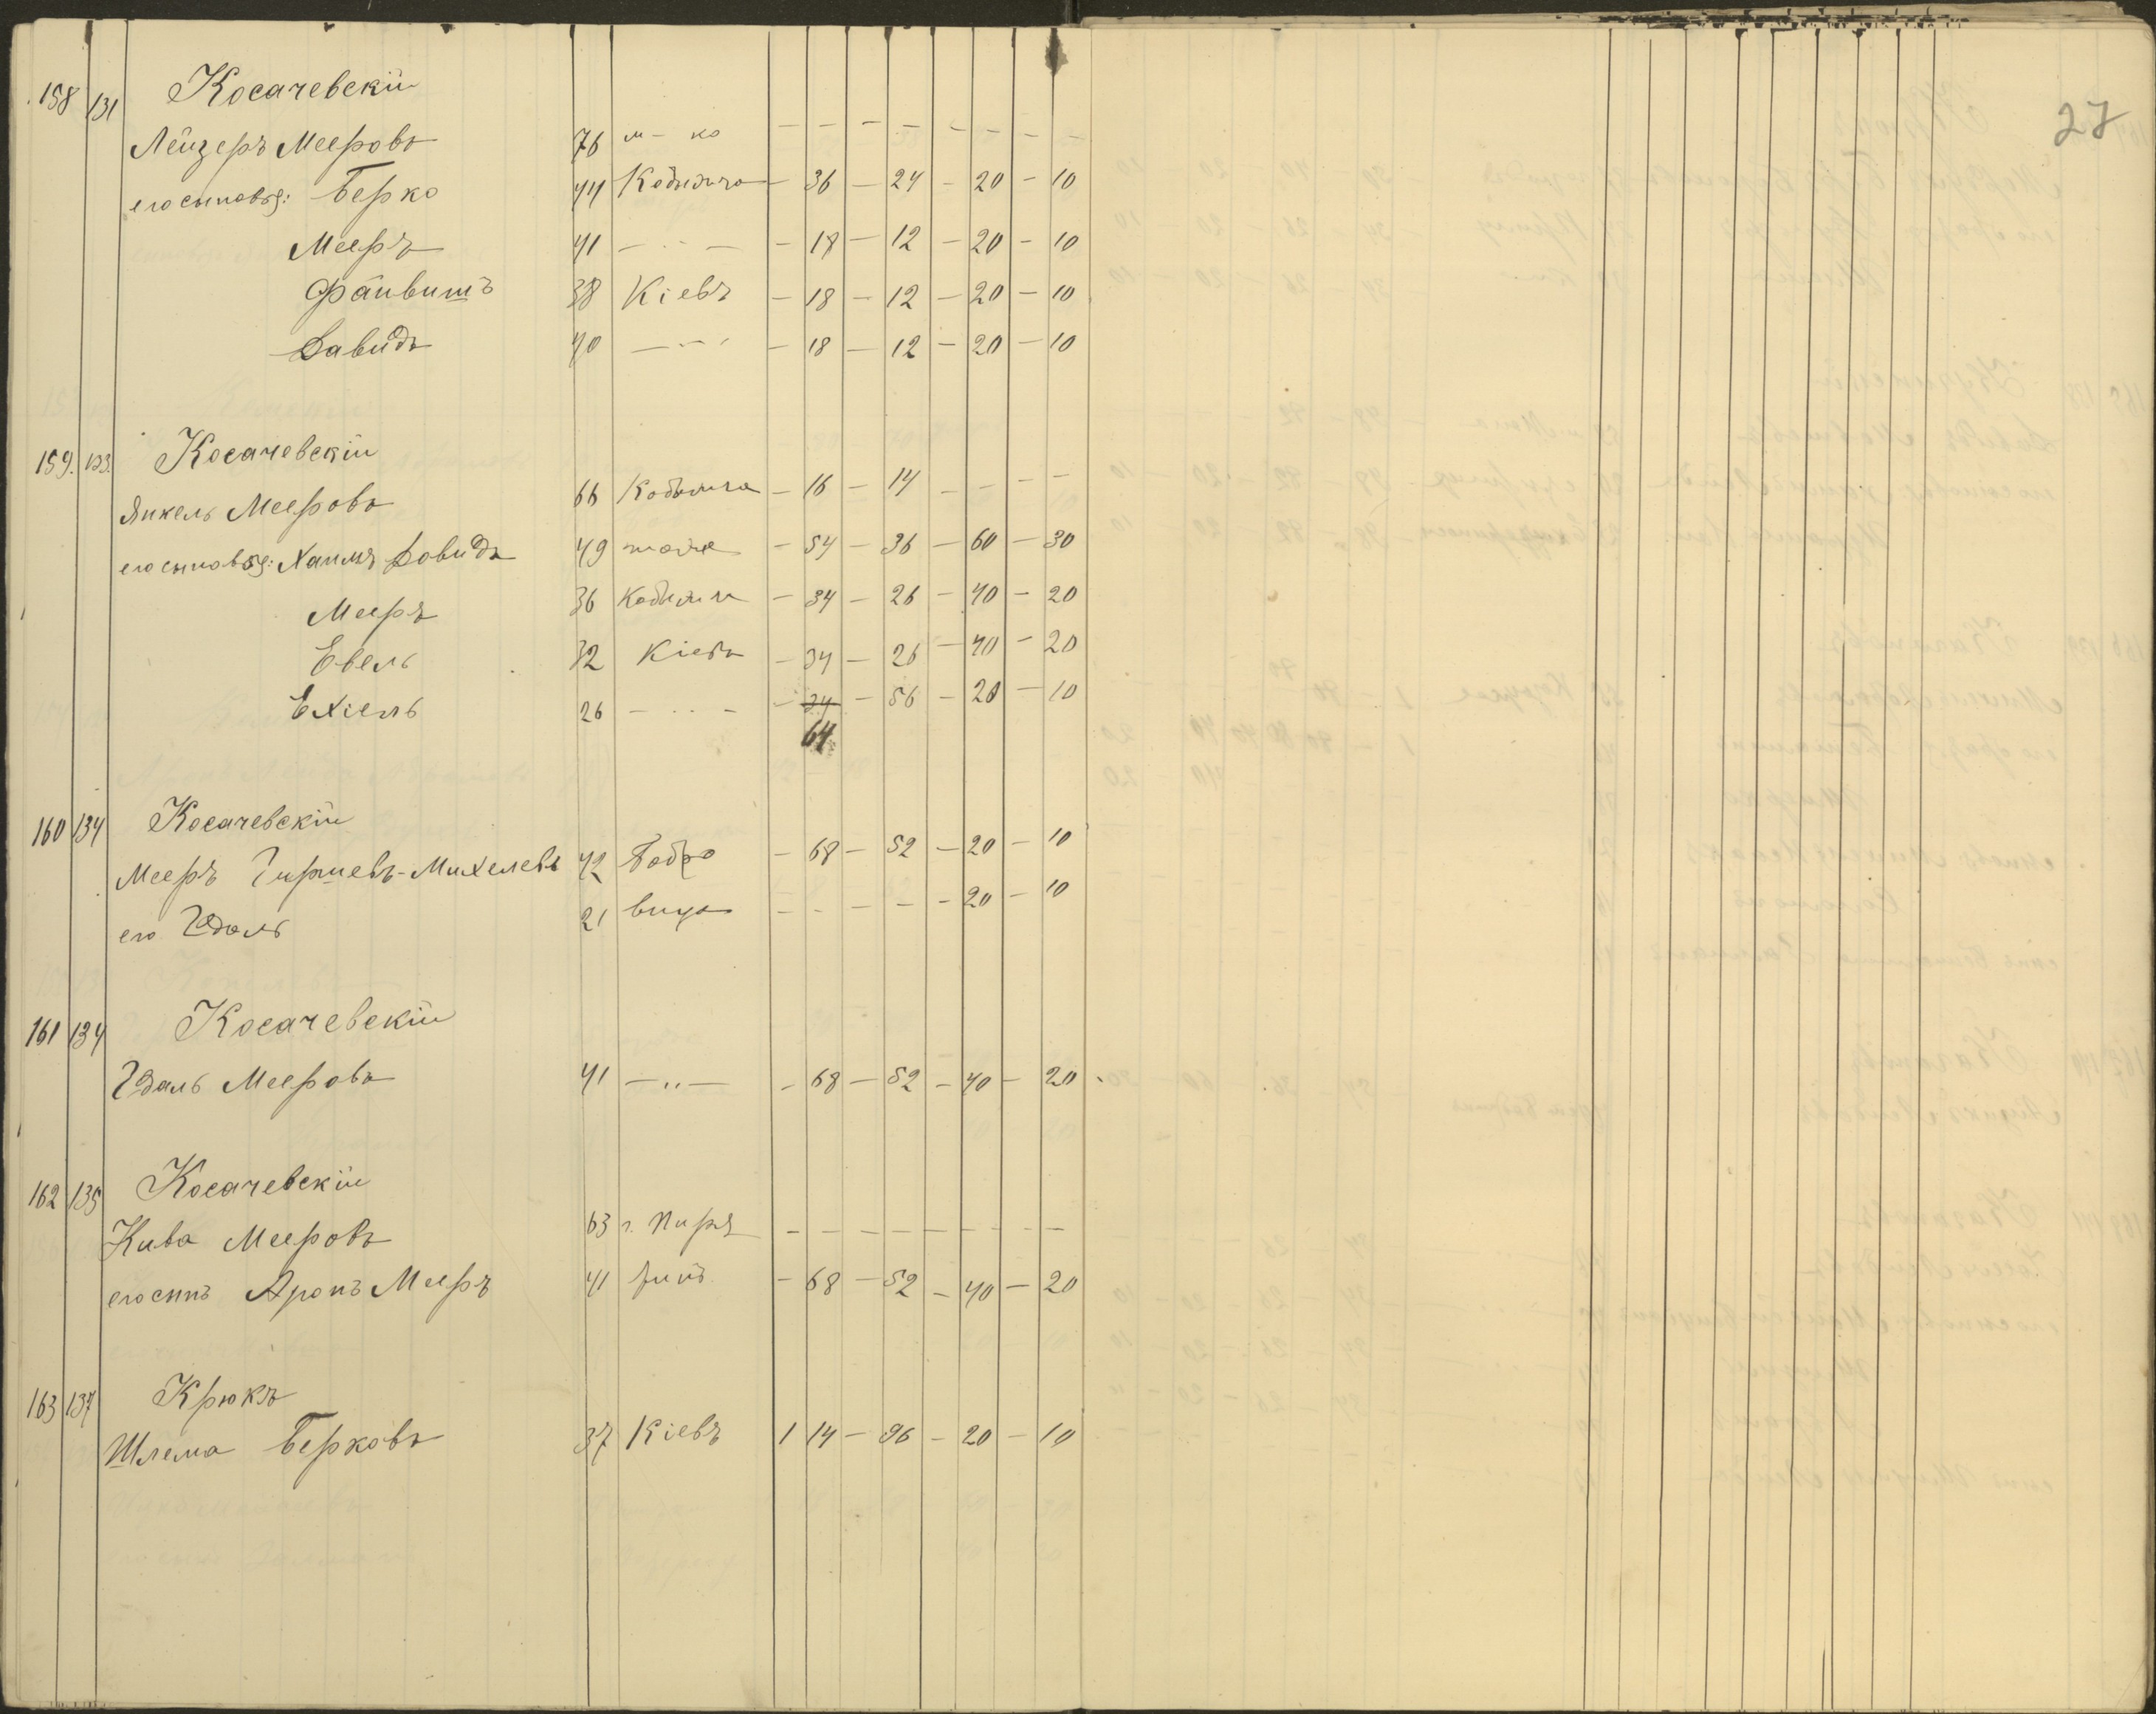 27
158 131 Косачевскій
Лейзеръ Мееровъ 76 м-ко — — — — — — — —
его сыновья: Берко 44 Кобыжча — 36 — 24 — 20 — 10
Мееръ 41 — " — — 18 — 12 — 20 — 10
Файвишъ 38 Кіевъ — 18 — 12 — 20 — 10
Давидъ 40 — " — — 18 — 12 — 20 — 10
159. 133. Косачевскій
Янкель Мееровъ 66 Кобыжча — 16 — 14 — — — —
его сыновья: Хаимъ Довидъ 49 тоже — 54 — 36 — 60 — 30
Мееръ 36 Кобыжча — 34 — 26 — 40 — 20
Евель 32 Кіевъ — 34 — 26 — 40 — 20
Ехіель 26 — " — — 34 — 56 — 20 — 10
64
160 134 Косачевскій
Мееръ Гиршевъ-Михелевъ 42 Бобро — 68 — 52 — 20 — 10
его Гдаль 21 вица — — — — — 20 — 10
161 134 Косачевскій
Гдаль Мееровъ 41 — " — — 68 — 52 — 40 — 20
162 135 Косачевскій
Кива Мееровъ 63 г. Пиря — — — — — — — —
его сынъ Аронъ Мееръ 41 тинъ — 68 — 52 — 40 — 20
163 137 Крюкъ
Шлема Берковъ 37 Кіевъ 1 14 — 96 — 20 — 10